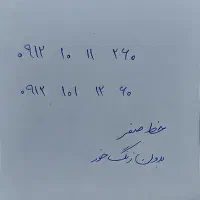 ۰۹۱۲ ۱۰ ۱۱ ۲۶۰
۰۹۱۲ ۱۰۱ ۱۲ ۶۰
خط صفر
بدون زنگ خور